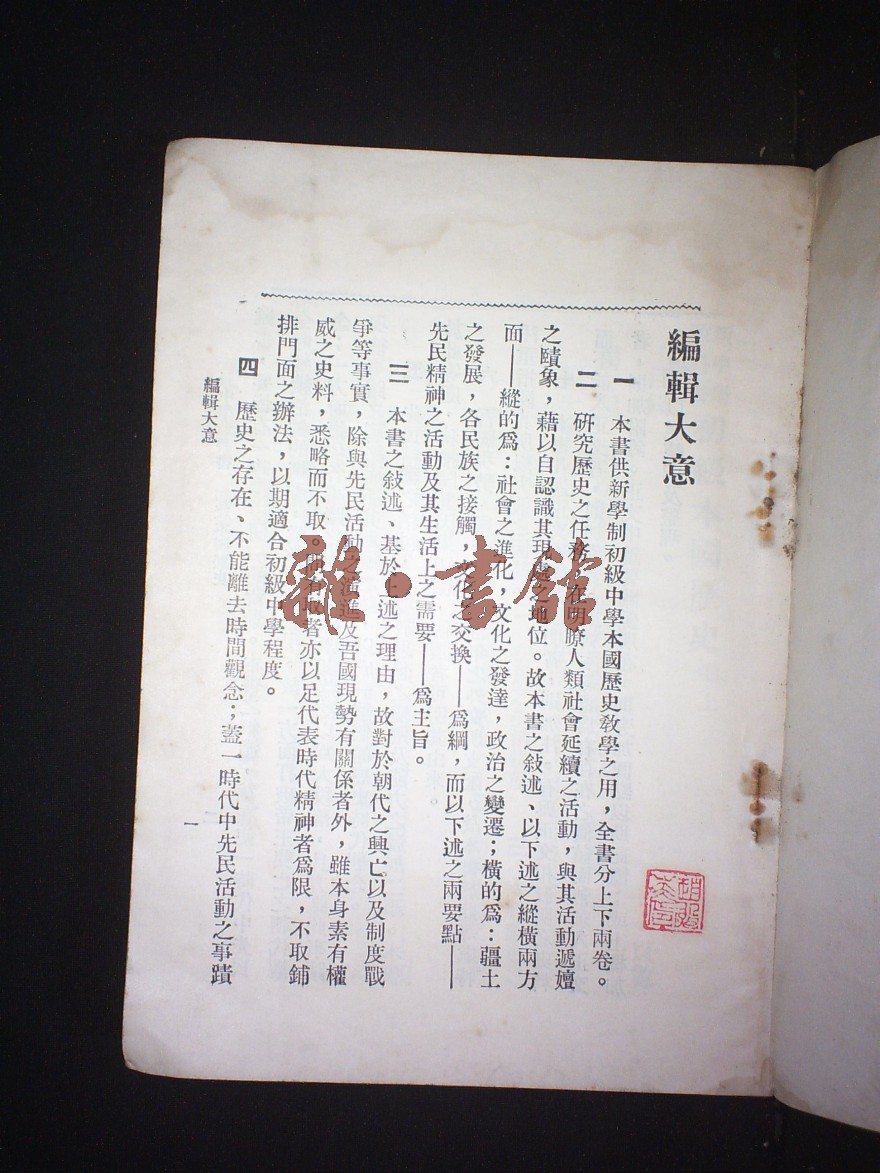 編輯大意
一 本書供新學制初級中學本國歷史教學之用，全書分上下兩卷。
二 硏究歷史之任務，在明瞭人類社會延續之活動，與其活動遞嬗
之賾象，藉以自認識其現處之地位。故本書之敍述、以下述之縱橫兩方
面——縱的爲：社會之進化，文化之發達，政治之變遷；橫的爲：疆土
之發展，各民族之接觸，文化之交換——爲綱，而以下述之兩要點——
先民精神之活動及其生活上之需要——爲主旨。
三 本書之敍述、基於上述之理由，故對於朝代之興亡以及制度戰
爭等事實，除與先民活動之演進及吾國現勢有關係者外，雖本身素有權
威之史料，悉略而不取。間有取者亦以足代表時代精神者爲限，不取鋪
排門面之辦法，以期適合初級中學程度。
四 歷史之存在、不能離去時間觀念；蓋一時代中先民活動之事蹟
編輯大意
一
雜·書館